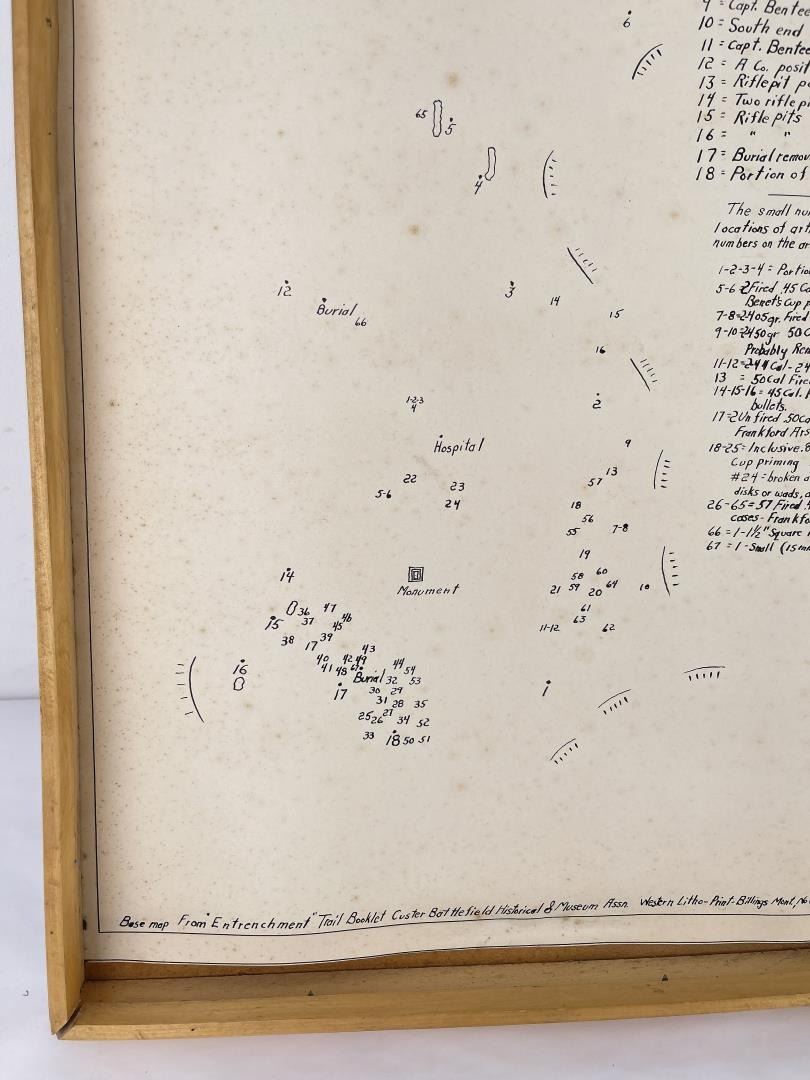 9 = Capt. Bentee
10 = South end
11 = Capt. Bentee
12 = A Co. posit
13 = Riflepit p
14 = Two rifle p
15 = Rifle pits
16 = " "
17 = Burial remov
18 = Portion of
The small nu
locations of art
numbers on the ar
1-2-3-4 = Portio
5-6 = 2 Fired .45 Ca
Benet's Cup p
7-8=2405gr. Fired
9-10=2450gr 50C
Probably Rem
11-12=244 Cal-24
13 = .50 Cal Fire
14-15-16 = 45 Cal.
bullets.
17=2 Un fired .50Ca
Frankford Ars
18-25 = Inclusive.
Cup priming
#24 = broken a
disks or wads, a
26-65 = 57 Fired .4
cases - Frankfo
66 = 1-1½" Square
67 = 1-Small (15mm
6
65
5
4
12
Burial
66
3
14
15
16
1-2-3
4
2
Hospital
9
22
5-6
23
24
13
57
18
56
55
7-8
19
14
Monument
58
60
21
59
20
64
10
61
63
11-12
62
36
47
15
37
46
45
38
17
39
43
40
42
49
41
48
67
44
54
16
Burial
32
53
17
30
29
31
28
35
25
26
27
34
52
33
18
50
51
1
Base map From "Entrenchment" Trail Booklet Custer Battlefield Historical & Museum Assn. Western Litho-Print-Billings Mont.